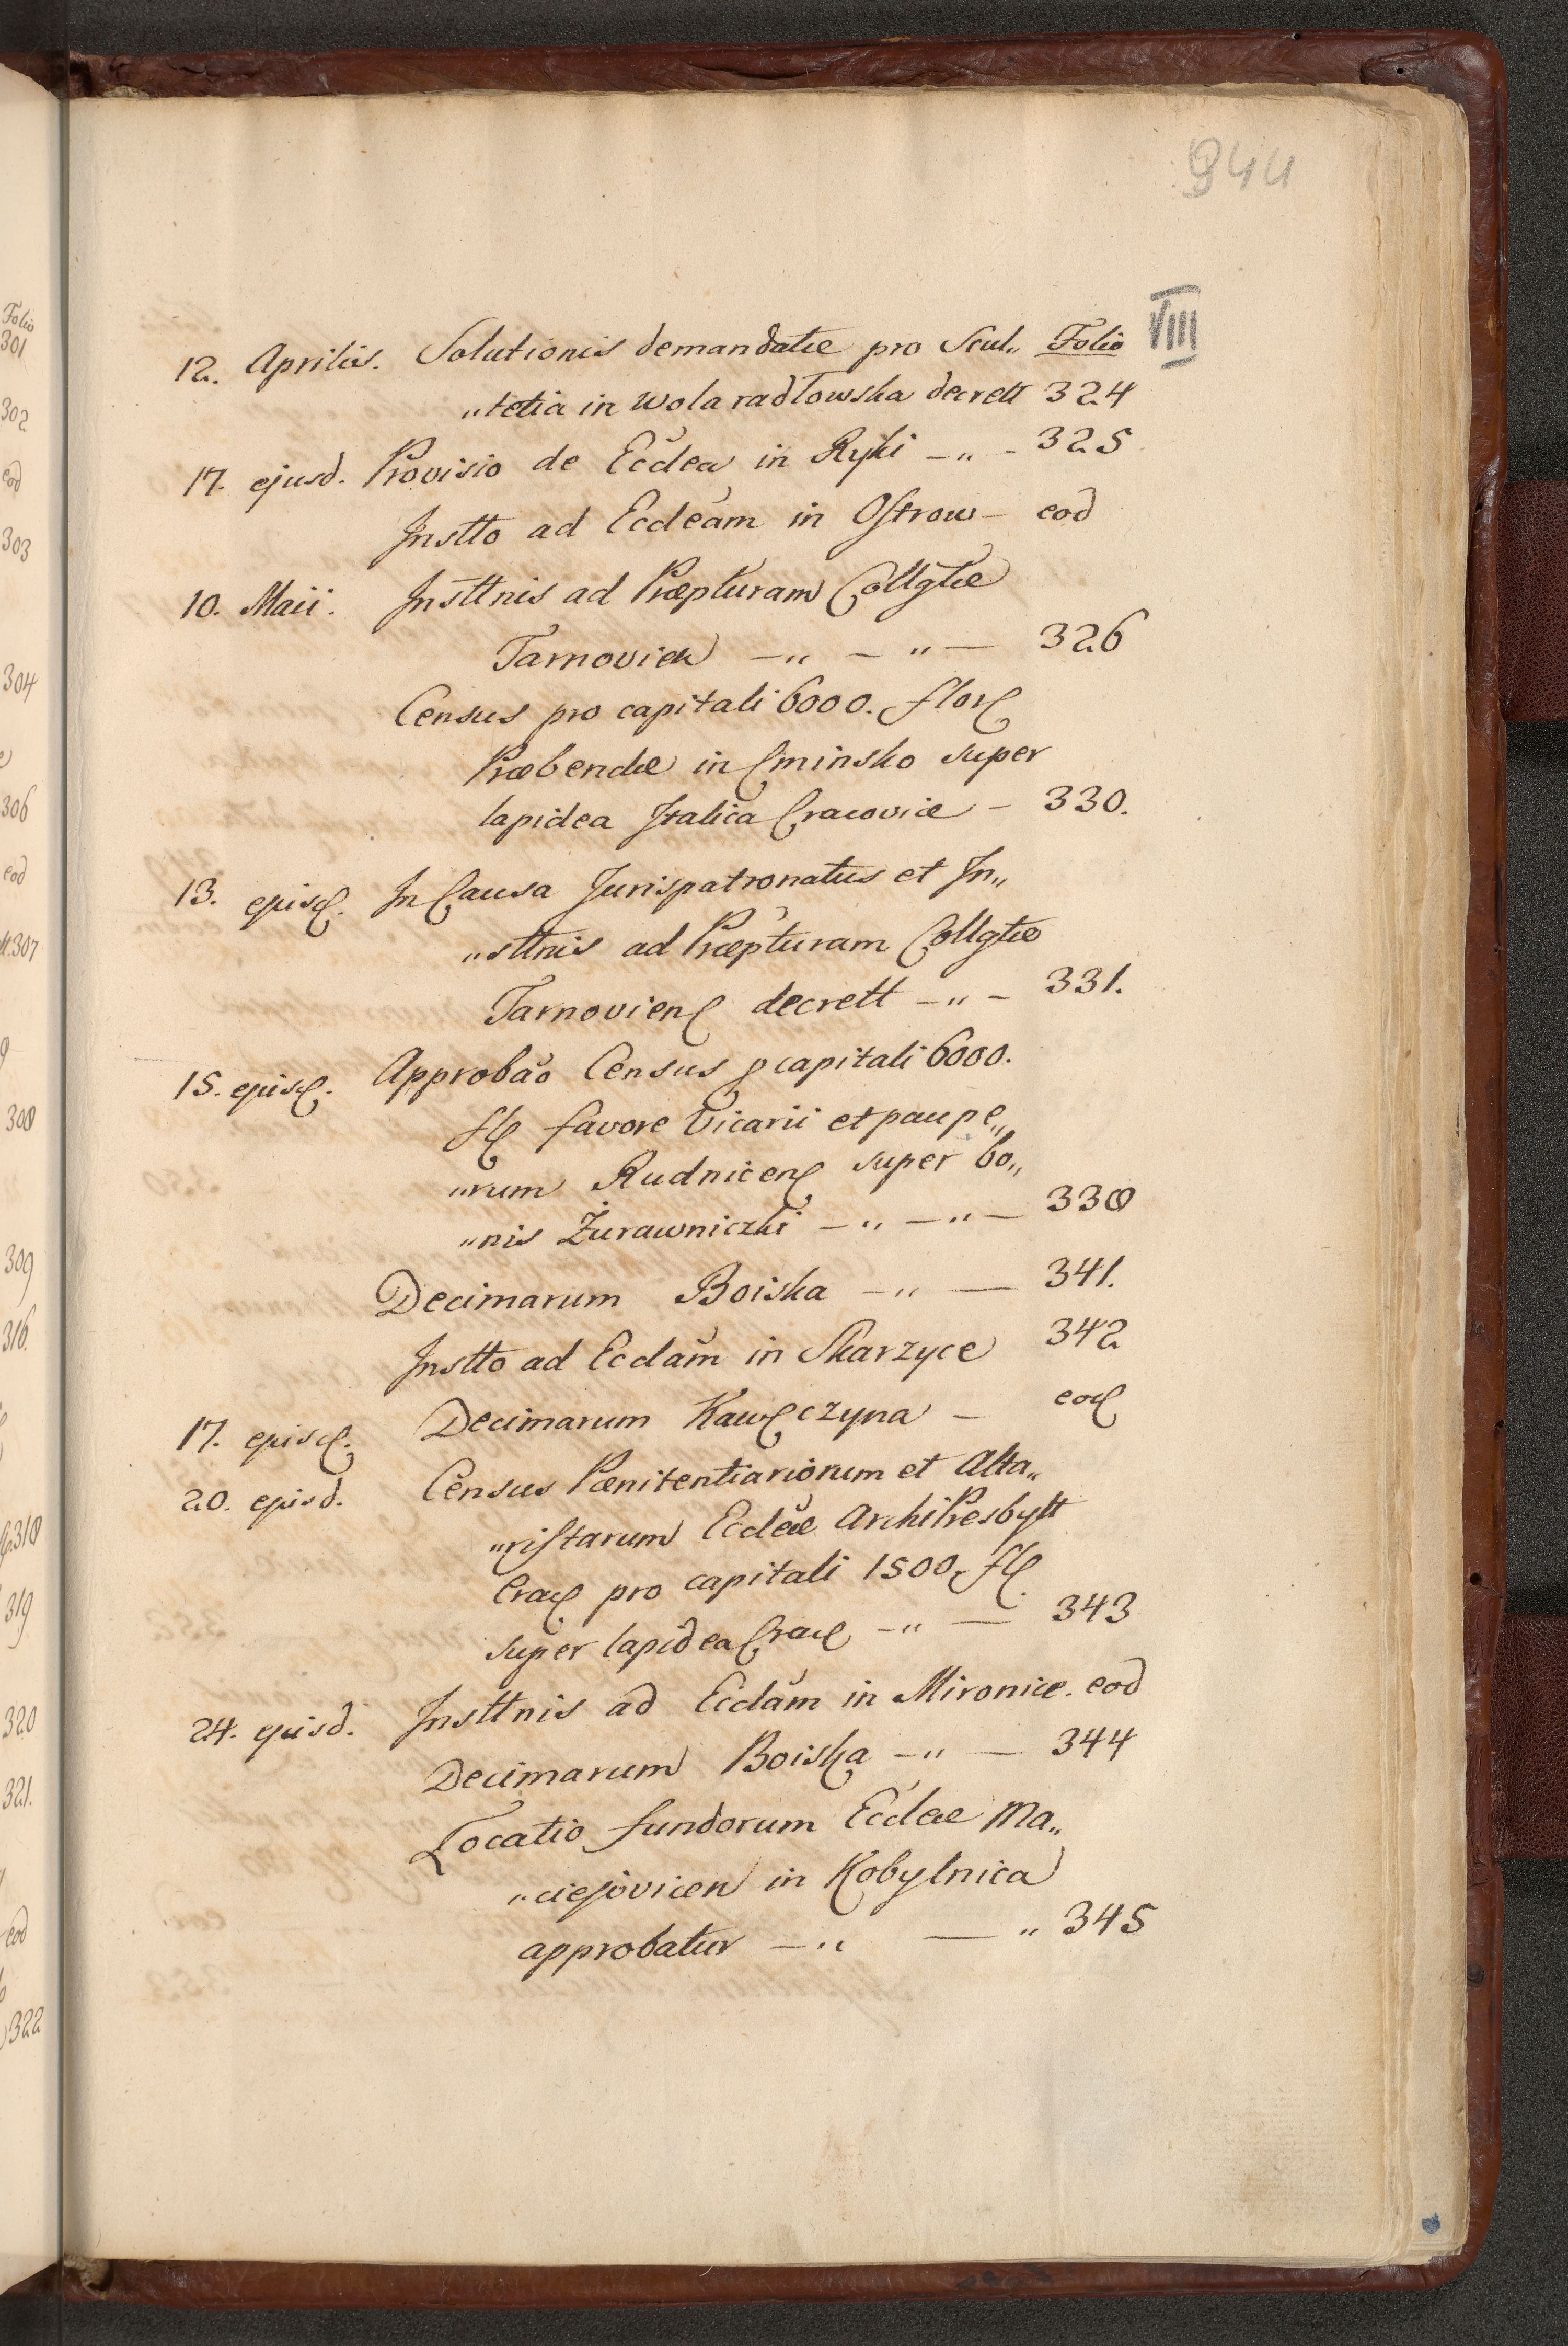 944
VIII
12. Aprilis. Solutionis demandatæ pro Scul„ Folio
„tetia in Wola radłowska decrett 324
17. ejusd. Provisio de Ecclea in Ryki —„ - 325
Instto ad Eccleam in Ostrow — eod
10. Maii. Insttnis ad Præpturam Collgtæ
Tarnovien —„ — „ — 326
Census pro capitali 6000. flor
Præbendæ in Cminsko super
lapidea Italica Cracoviæ — 330.
13. ejusd. In Causa Jurispatronatus et In„
„sttnis ad Præpturam Collgtæ
Tarnovien decrett —„ — 331.
15. ejusd. Approbao Census p capitali 6000.
fl favore Vicarii et paupe„
„rum Rudnicen super bo„
„nis Żurawniczki —„ —„— 338
Decimarum Boiska —„ — 341.
Instto ad Ecclam in Skarzyce 342
17. ejusd. Decimarum Kawęczyna — eod
20. ejusd. Census Pœnitentiariorum et Alta„
„ristarum Eccleæ ArchiPresbytt
Crac pro capitali 1500. fl
super lapidea Crac —„ — 343
24. ejusd. Insttnis ad Ecclam in Mironice. eod
Decimarum Boiska —„ — 344
Locatio fundorum Eccleæ Ma„
„ciejovicen in Kobylnica
approbatur —„ — „ 345
Folio
301
302
eod
303
304
306
eod
307
308
309
316.
318
319
320
321.
eod
322